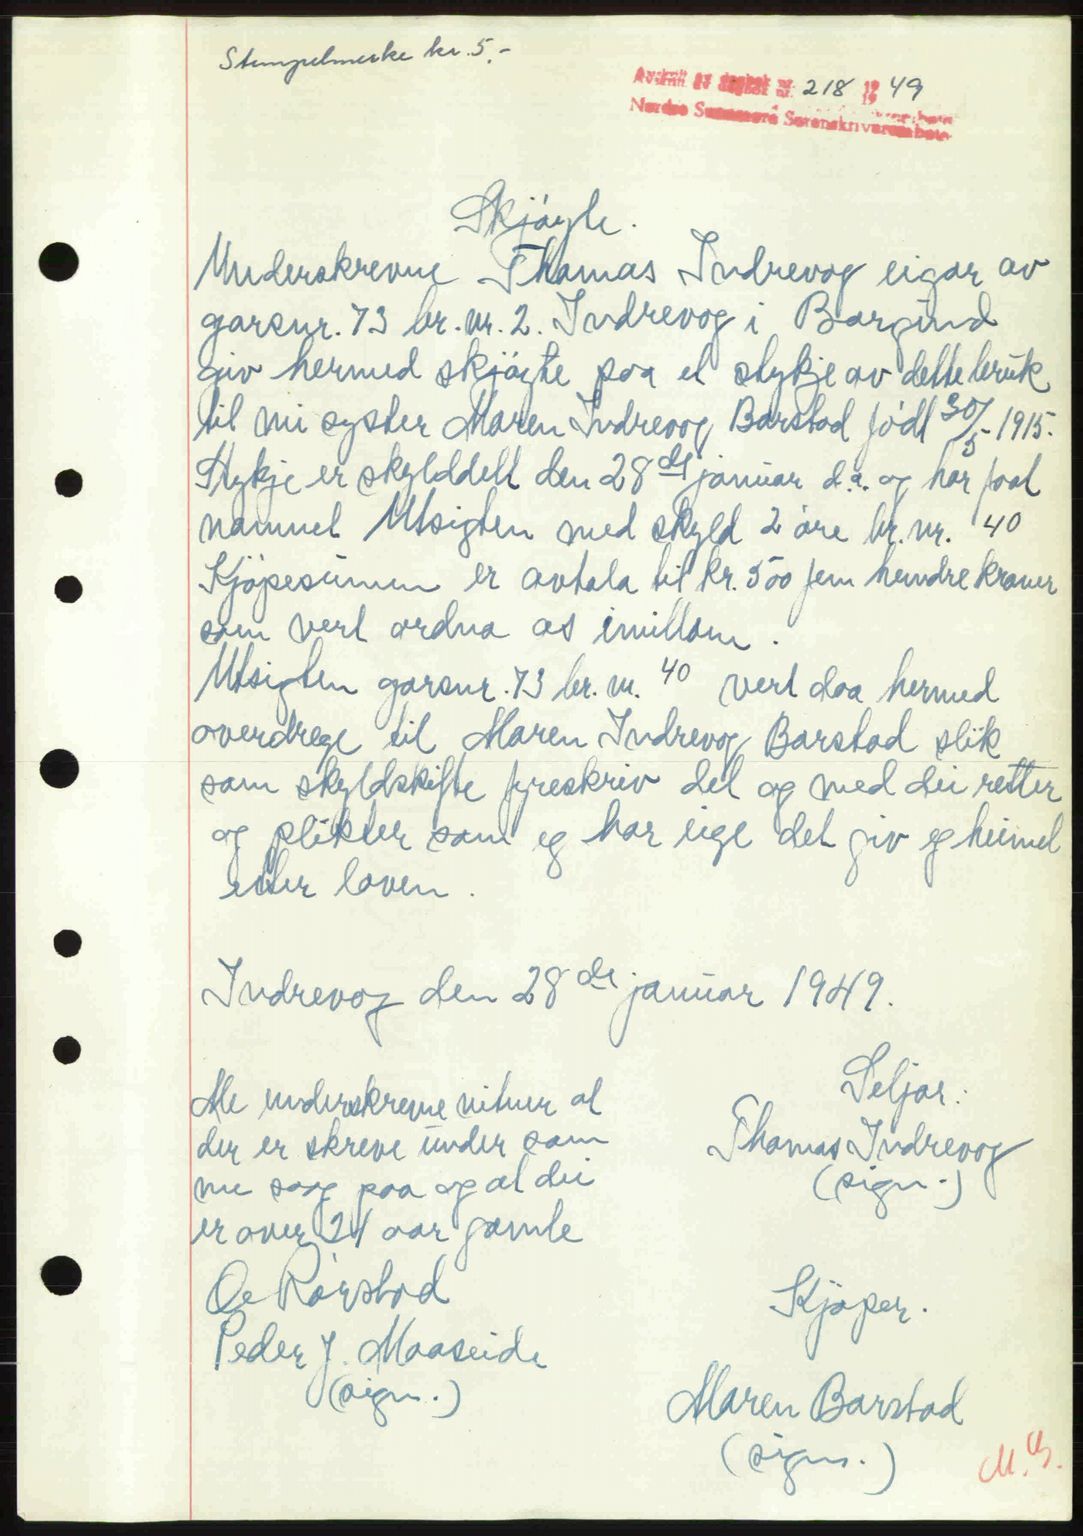 Stempelmerke kr. 5.-
Avskrift av dagbok nr. 218 19 49
Nordre Sunnmøre Sorenskrivarembete
Skjøyte.
Underskrevne Thomas Indrevog eigar av
garsnr. 73 br. nr. 2. Indrevog i Borgund
giv hermed skjøyte paa et stykje av dette bruk
til mi syster Maren Indrevog Barstad født 30/5-1915.
Stykje er skylddelt den 28de januar d.a. og har faat
namnet Utsigten med skyld 2 øre br. nr. 40
Kjøpesumen er avtala til kr. 500 fem hundre kroner
som vert ordna os imillom.
Utsigten garsnr. 73 br. nr. 40 vert daa hermed
overdrege til Maren Indrevog Barstad slik
som skyldskifte fyreskriv det og med dei retter
og plikter som eg har eige det giv eg heimel
etter loven.
Indrevog den 28de januar 1949.
Me underskrevne vitner at
der er skreve under som
me saag paa og at dei
er over 21 aar gamle
Seljar:
Thomas Indrevog
(sign.)
Rørstad
Peder J. Maaseide
(sign.)
Kjøper.
Maren Barstad
(sign.)